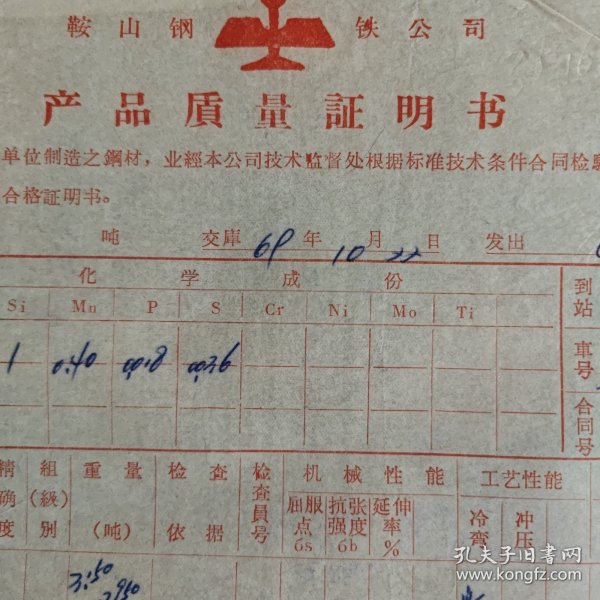 鞍山钢铁公司
产品质量証明书
单位制造之鋼材，业經本公司技术监督处根据标准技术条件合同检驗
合格証明书。
吨 交庫 69 年 10 月 22 日 发出
化学成份 到站
Si Mn P S Cr Ni Mo Ti
1 0.40 車号
合同号
精确度 組(級)別 重量(吨) 检查依据 检查員号 机械性能 工艺性能
屈服点 бs 抗张强度 бb 延伸率 % 冷弯 冲压
3.50
孔夫子旧书网
www.kongfz.com